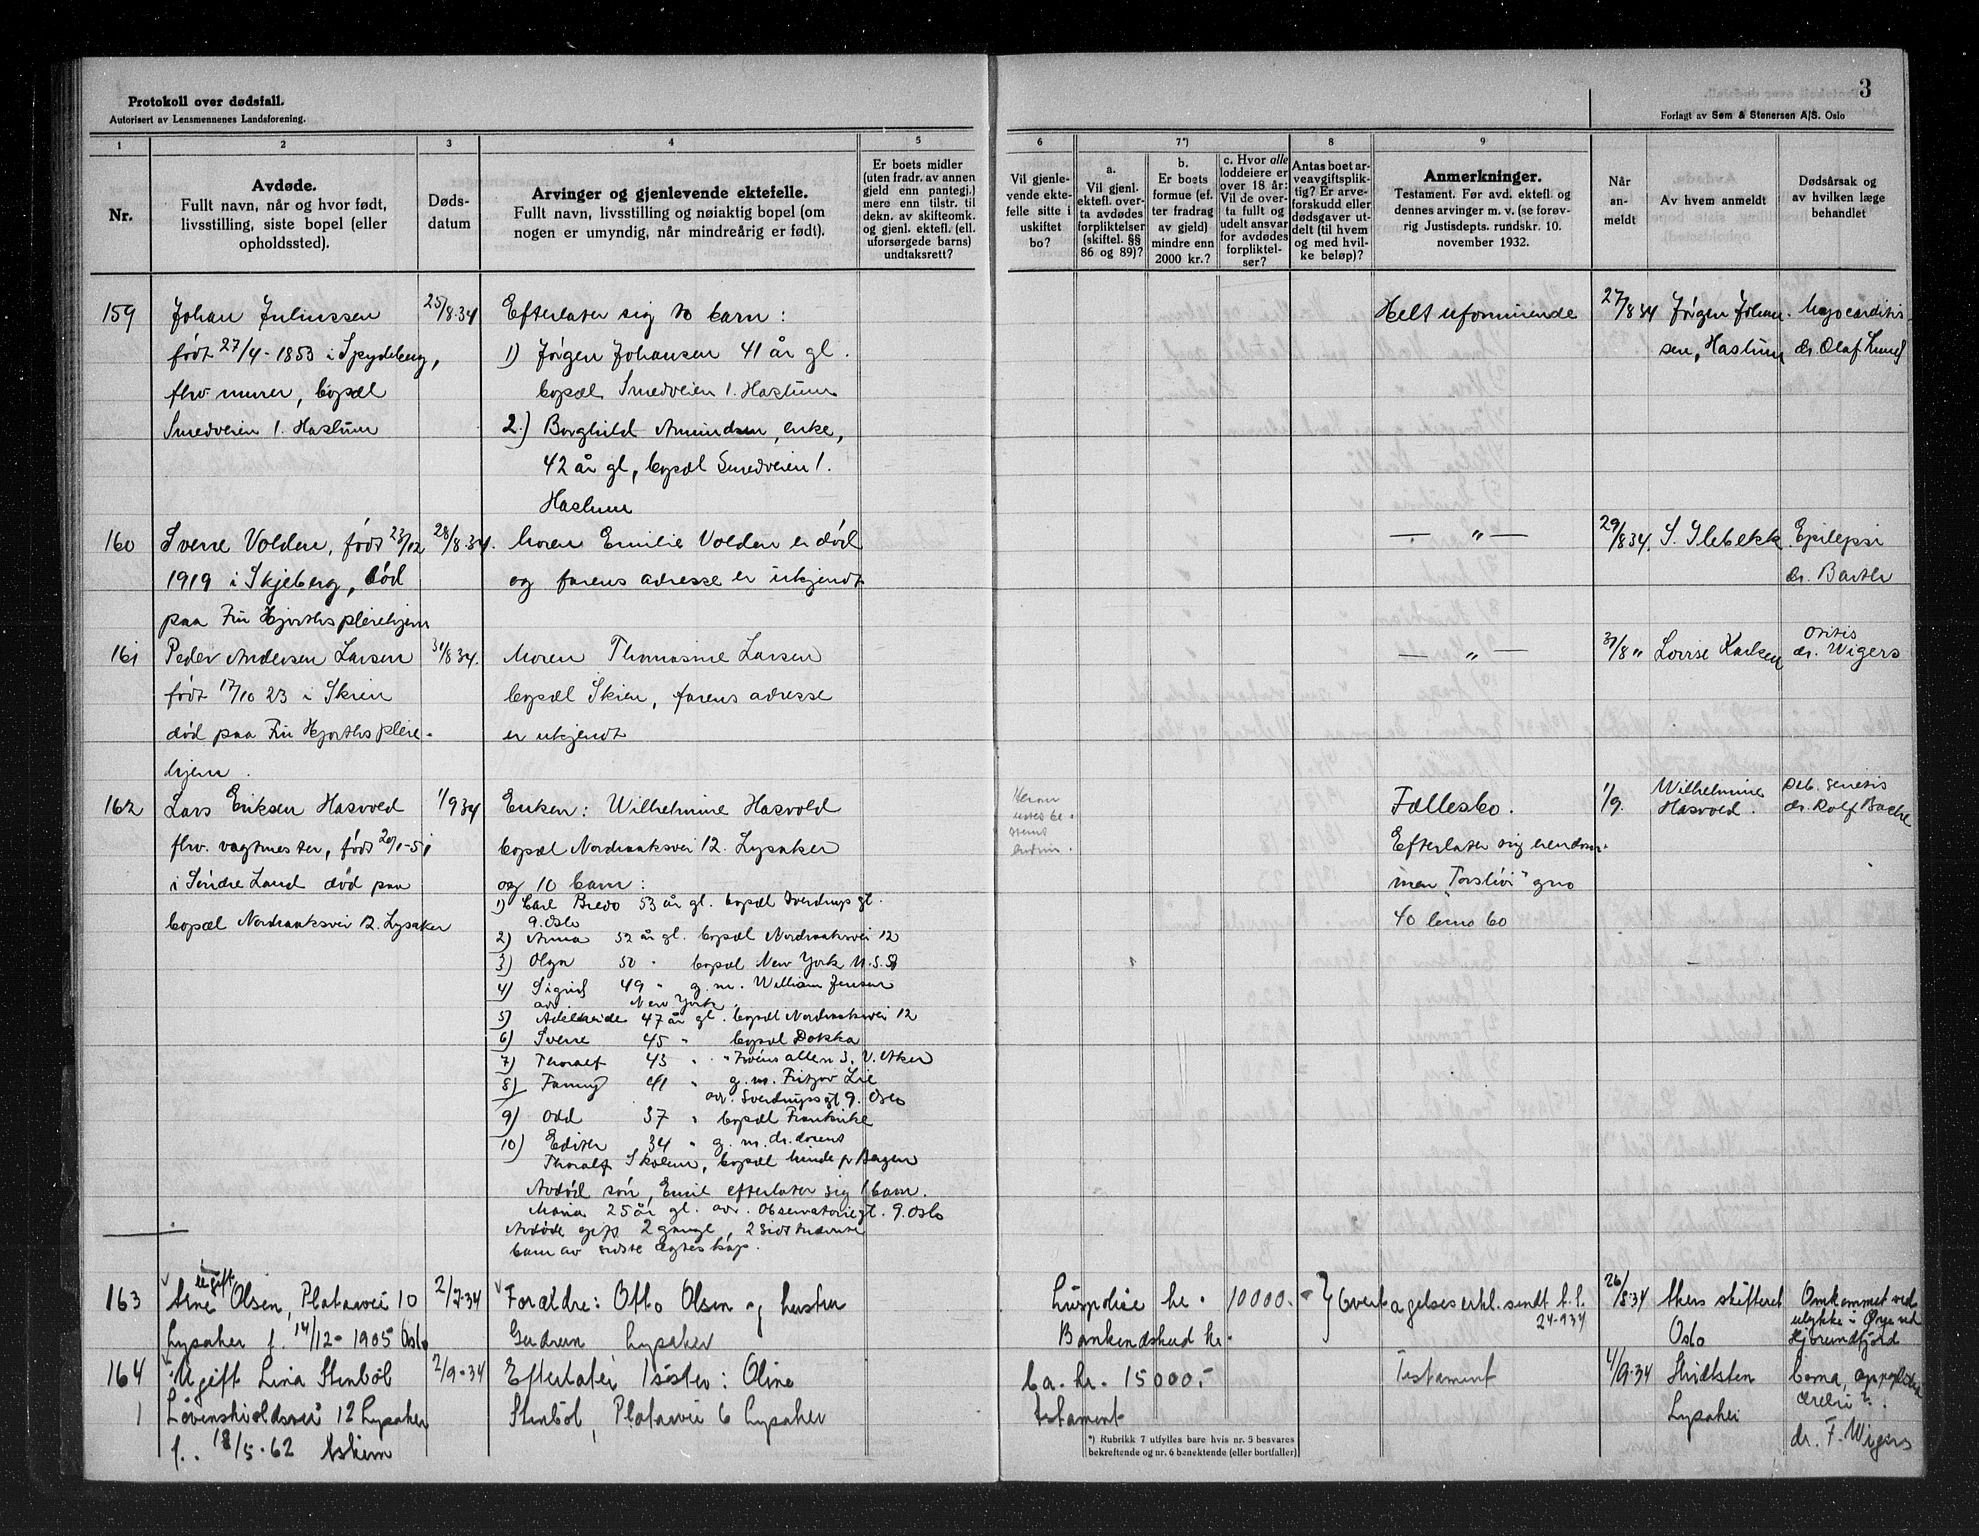 Protokoll over dødsfall.
Autorisert av Lensmennenes Landsforening.
3
Forlagt av Søm & Stenersen A/S. Oslo
1 2 3 4 5 6 7*) 8 9
Nr.
Avdøde.
Fullt navn, når og hvor født,
livsstilling, siste bopel (eller
opholdssted).
Døds-
datum
Arvinger og gjenlevende ektefelle.
Fullt navn, livsstilling og nøiaktig bopel (om
nogen er umyndig, når mindreårig er født).
Er boets midler
(uten fradr. av annen
gjeld enn pantegj.)
mere enn tilstr. til
dekn. av skifteomk.
og gjenl. ektefl. (ell.
uforsørgede barns)
undtaksrett?
Vil gjenle-
vende ekte-
felle sitte i
uskiftet
bo?
a.
Vil gjenl.
ektefl. over-
ta avdødes
forpliktelser
(skiftel. §§
86 og 89)?
b.
Er boets
formue (ef-
ter fradrag
av gjeld)
mindre enn
2000 kr.?
c. Hvor alle
loddeiere er
over 18 år:
Vil de over-
ta fullt og
udelt ansvar
for avdødes
forpliktel-
ser?
Antas boet ar-
veavgiftsplik-
tig? Er arve-
forskudd eller
dødsgaver ut-
delt (til hvem
og med hvil-
ke beløp)?
Anmerkninger.
Testament. Før avd. ektefl. og
dennes arvinger m. v. (se forøv-
rig Justisdepts. rundskr. 10.
november 1932.
Når
an-
meldt
Av hvem anmeldt
Dødsårsak og
av hvilken læge
behandlet
159
Johan Juliussen
født 27/4-1853 i Spydeberg,
fhv. murer, bopæl
Smedveien 1. Haslum
25/8.34
Efterlater sig to barn:
1) Jørgen Johansen 41 år gl.
bopæl Smedveien 1. Haslum
2.) Borghild Amundsen, enke,
42 år gl, bopæl Smedveien 1.
Haslum
Helt uformuende
27/8 34
Jørgen Johan-
sen, Haslum
Myocarditis
dr. Olaf Lund
160
Sverre Volden, født 23/12
1919 i Skjeberg, død
paa Fru Hjorths pleiehjem
28/8.34.
Moren Emilie Volden er død
og farens adresse er ukjendt
— „ —
29/8 34.
S. Slebekk
Epilepsi
dr. Barth
161
Peder Andersen Larsen
født 17/10 23 i Skien
død paa Fru Hjorths pleie-
hjem.
31/8 34.
Moren Thomasine Larsen
bopæl Skien, farens adresse
er ukjendt
— „ —
31/8 „
Lovise Karlsen
Otitis
dr. Wigers
162
Lars Eriksen Hasvold
fhv. vagtmester, født 20/1-51
i Søndre Land død paa
bopæl Nordraaksvei 12. Lysaker
1/9 34
Enken: Wilhelmine Hasvold
bopæl Nordraaksvei 12. Lysaker
og 10 barn:
1) Carl Bredo 53 år gl. bopæl Sverdrups gl.
9. Oslo
2) Anna 52 år gl. bopæl Nordraaksvei 12
3) Olga 50 „ bopæl New York U.S.A
4) Sigrid 49 „ g.m. William Jensen
adr. New York
5) Adelheide 47 år gl. bopæl Nordraaksvei 12
6) Sverre 45 „ bopæl Dokka
7) Thoralf 43 „ „ alleen 3, V. Aker
8) Fanny 41 „ g.m. Fritjov Lie
adr. Sverdrupsgt 9. Oslo
9) Odd 37 „ bopæl Frankrike
10) Edith 34 „ g.m. dr. dosent
Thoralf Skolem, bopæl Minde pr Bergen
Avdød søn, Emil efterlater sig 1 barn.
Maria 25 år gl. adr. Observatoriegt. 9. Oslo
Avdøde gift 2 gange, 2 sidstnævnte
barn av sidste ægteskap.
Fællesbo.
Efterlater sig eiendom-
men „Torslivi“ gno
40 bno 60
1/9.
Wilhelmine
Hasvold.
Deb. senilis
dr. Rolf Bache
163
ugift
Arne Olsen, Plataavei 10
Lysaker f. 14/12-1905 Oslo
2/7-34
Forældre: Otto Olsen og hustru
Gudrun Lysaker
Livspolise kr. 10000.-
Bankindskud kr.
Overtagelseserkl. sendt
24-9 34
26/8-34
Akers skifteret
Oslo
Omkommet ved
ulykke i Ørje ved
Hjørundfjord
164
1
Ugift Lina Stenbøl
Løvenskioldsvei 12 Lysaker
f. 18/5-62 Askim
2/9-34
Efterlater 1 søster: Oline
Stenbøl, Plataavei 6 Lysaker
Ca. kr. 15000.-
testament
Testament
4/9-34
Lysaker
Coma, 
dr. F. Wigers
*) Rubrikk 7 utfylles bare hvis nr. 5 besvares
bekreftende og nr. 6 benektende (eller bortfaller)